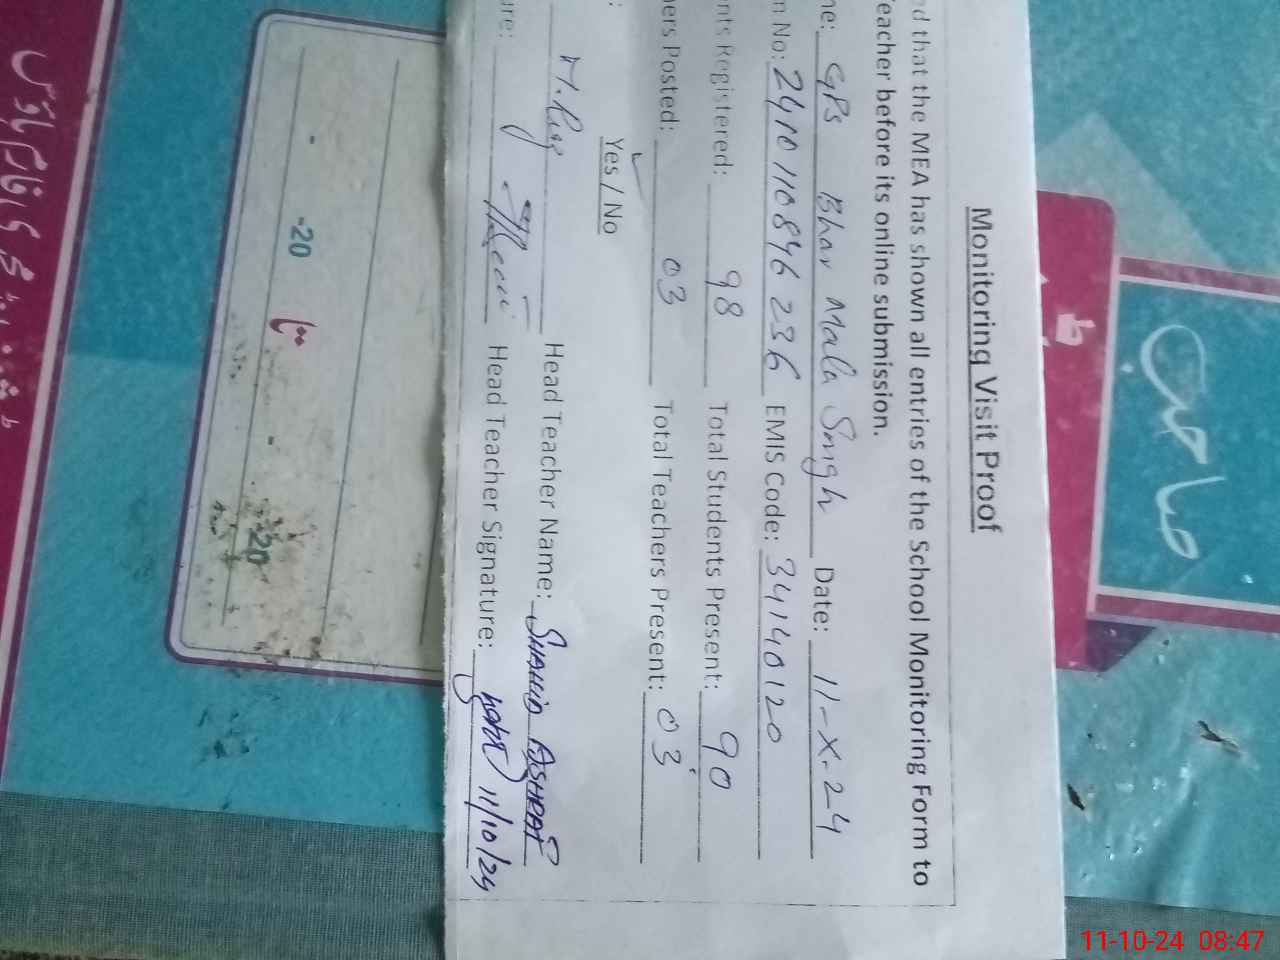 Monitoring Visit Proof
ed that the MEA has shown all entries of the School Monitoring Form to
Teacher before its online submission.
me: GPS Bhar Mala Singh Date: 11-X-24
n No: 2410110846236 EMIS Code: 34140120
nts Registered: 98 Total Students Present: 90
ers Posted: 03 Total Teachers Present: 03
Yes / No
Head Teacher Name: SHAHID ASHRAF
ure: Head Teacher Signature: 11/10/24
صاحب
-20
-20
تا
11-10-24 08:47